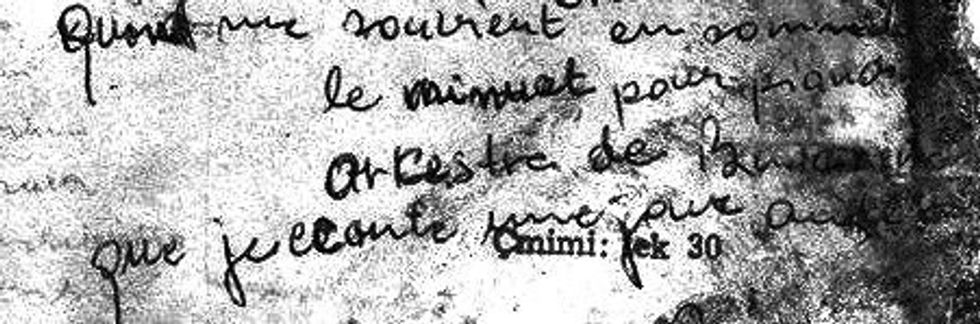 Quand me souvient en
le minuet pour piano
arkestra de
que je ecoute une jour
Çmimi: lek 30